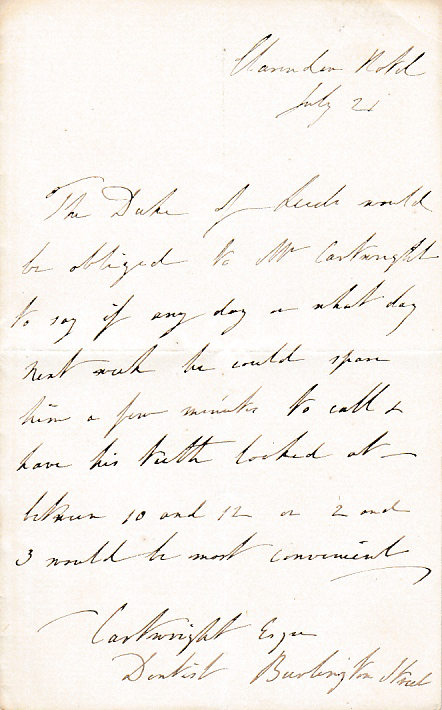 Clarendon Hotel
July 21
The Duke of Leeds would
be obliged to Mr Cartwright
to say if any day or what day
next week he could spare
him a few minutes to call &
have his teeth looked at—
between 10 and 12 or 2 and
3 would be most convenient
Cartwright Esqre
Dentist Burlington Street